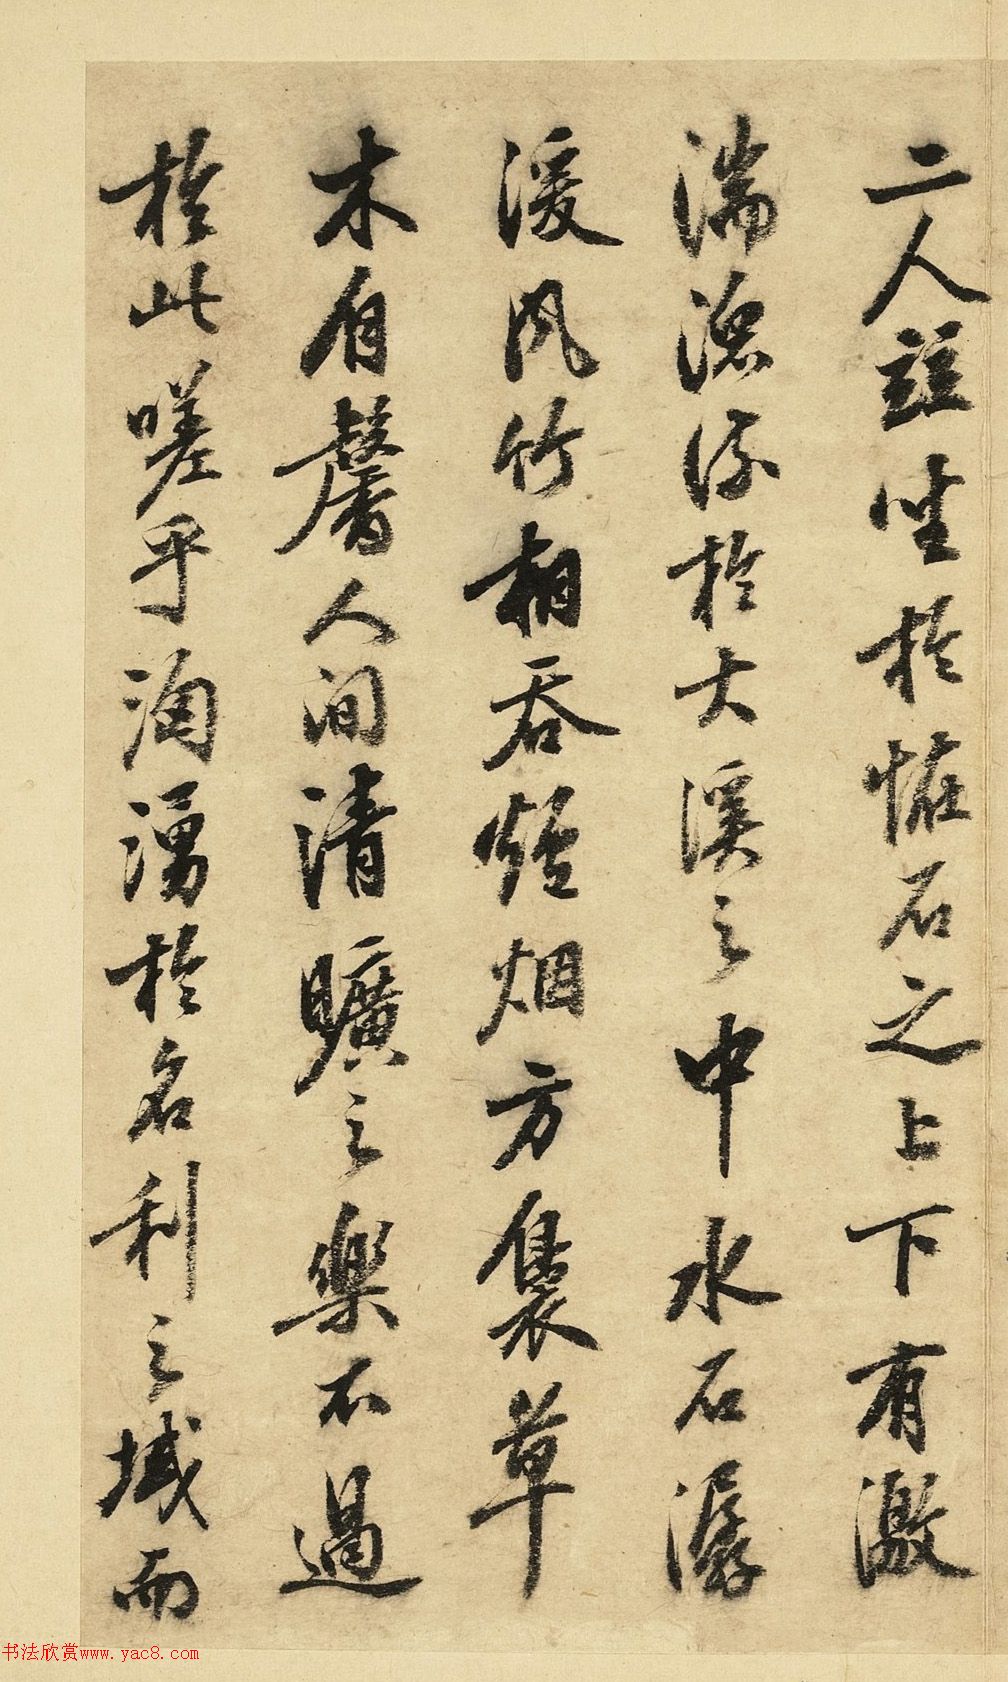 二人竝坐於怪石之上下有激
湍潀流於大溪之中水石潺
湲風竹相吞爐烟方裊草
木自馨人間清曠之樂不過
於此嗟乎洶湧於名利之域而
书法欣赏www.yac8.com